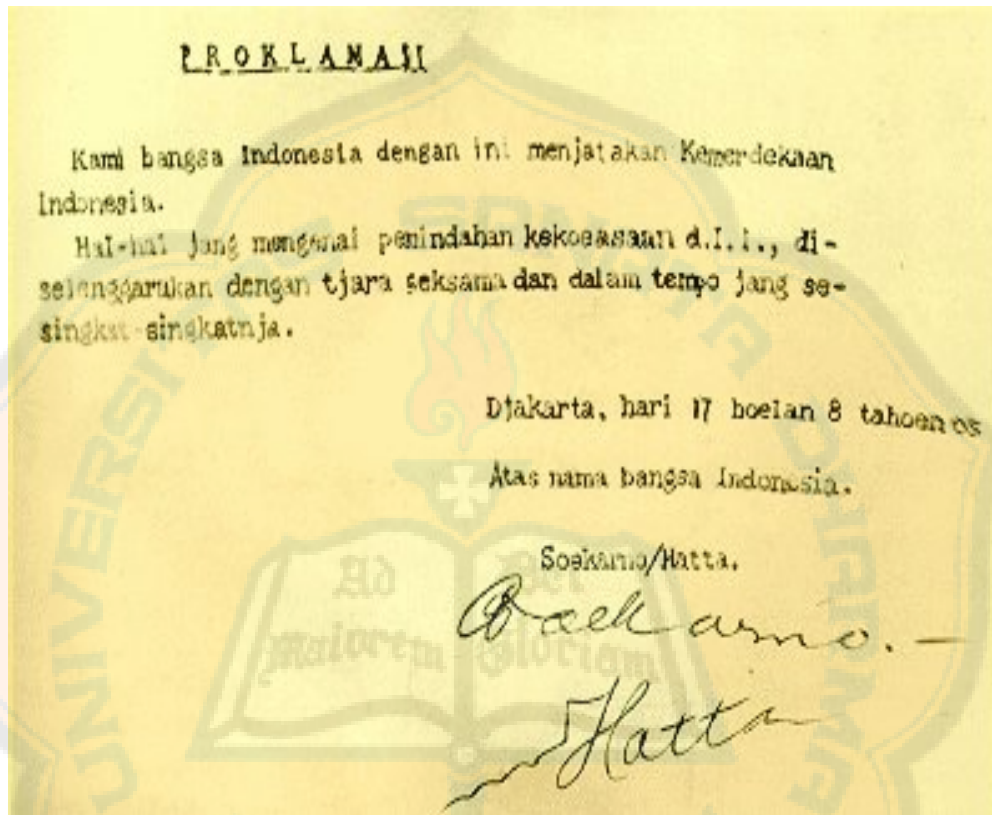 PROKLAMASI
Kami bangsa Indonesia dengan ini menjatakan Kemerdekaan
Indonesia.
Hal-hal jang mengenai pemindahan kekoeasaan d.l.l., di-
selenggarakan dengan tjara seksama dan dalam tempo jang se-
singkat-singkatnja.
Djakarta, hari 17 boelan 8 tahoen 05
Atas nama bangsa Indonesia.
Soekarno/Hatta.
Soekarno.-
Hatta
UNIVERSITAS SANATA DHARMA
Ad Dei
Maiorem Gloriam